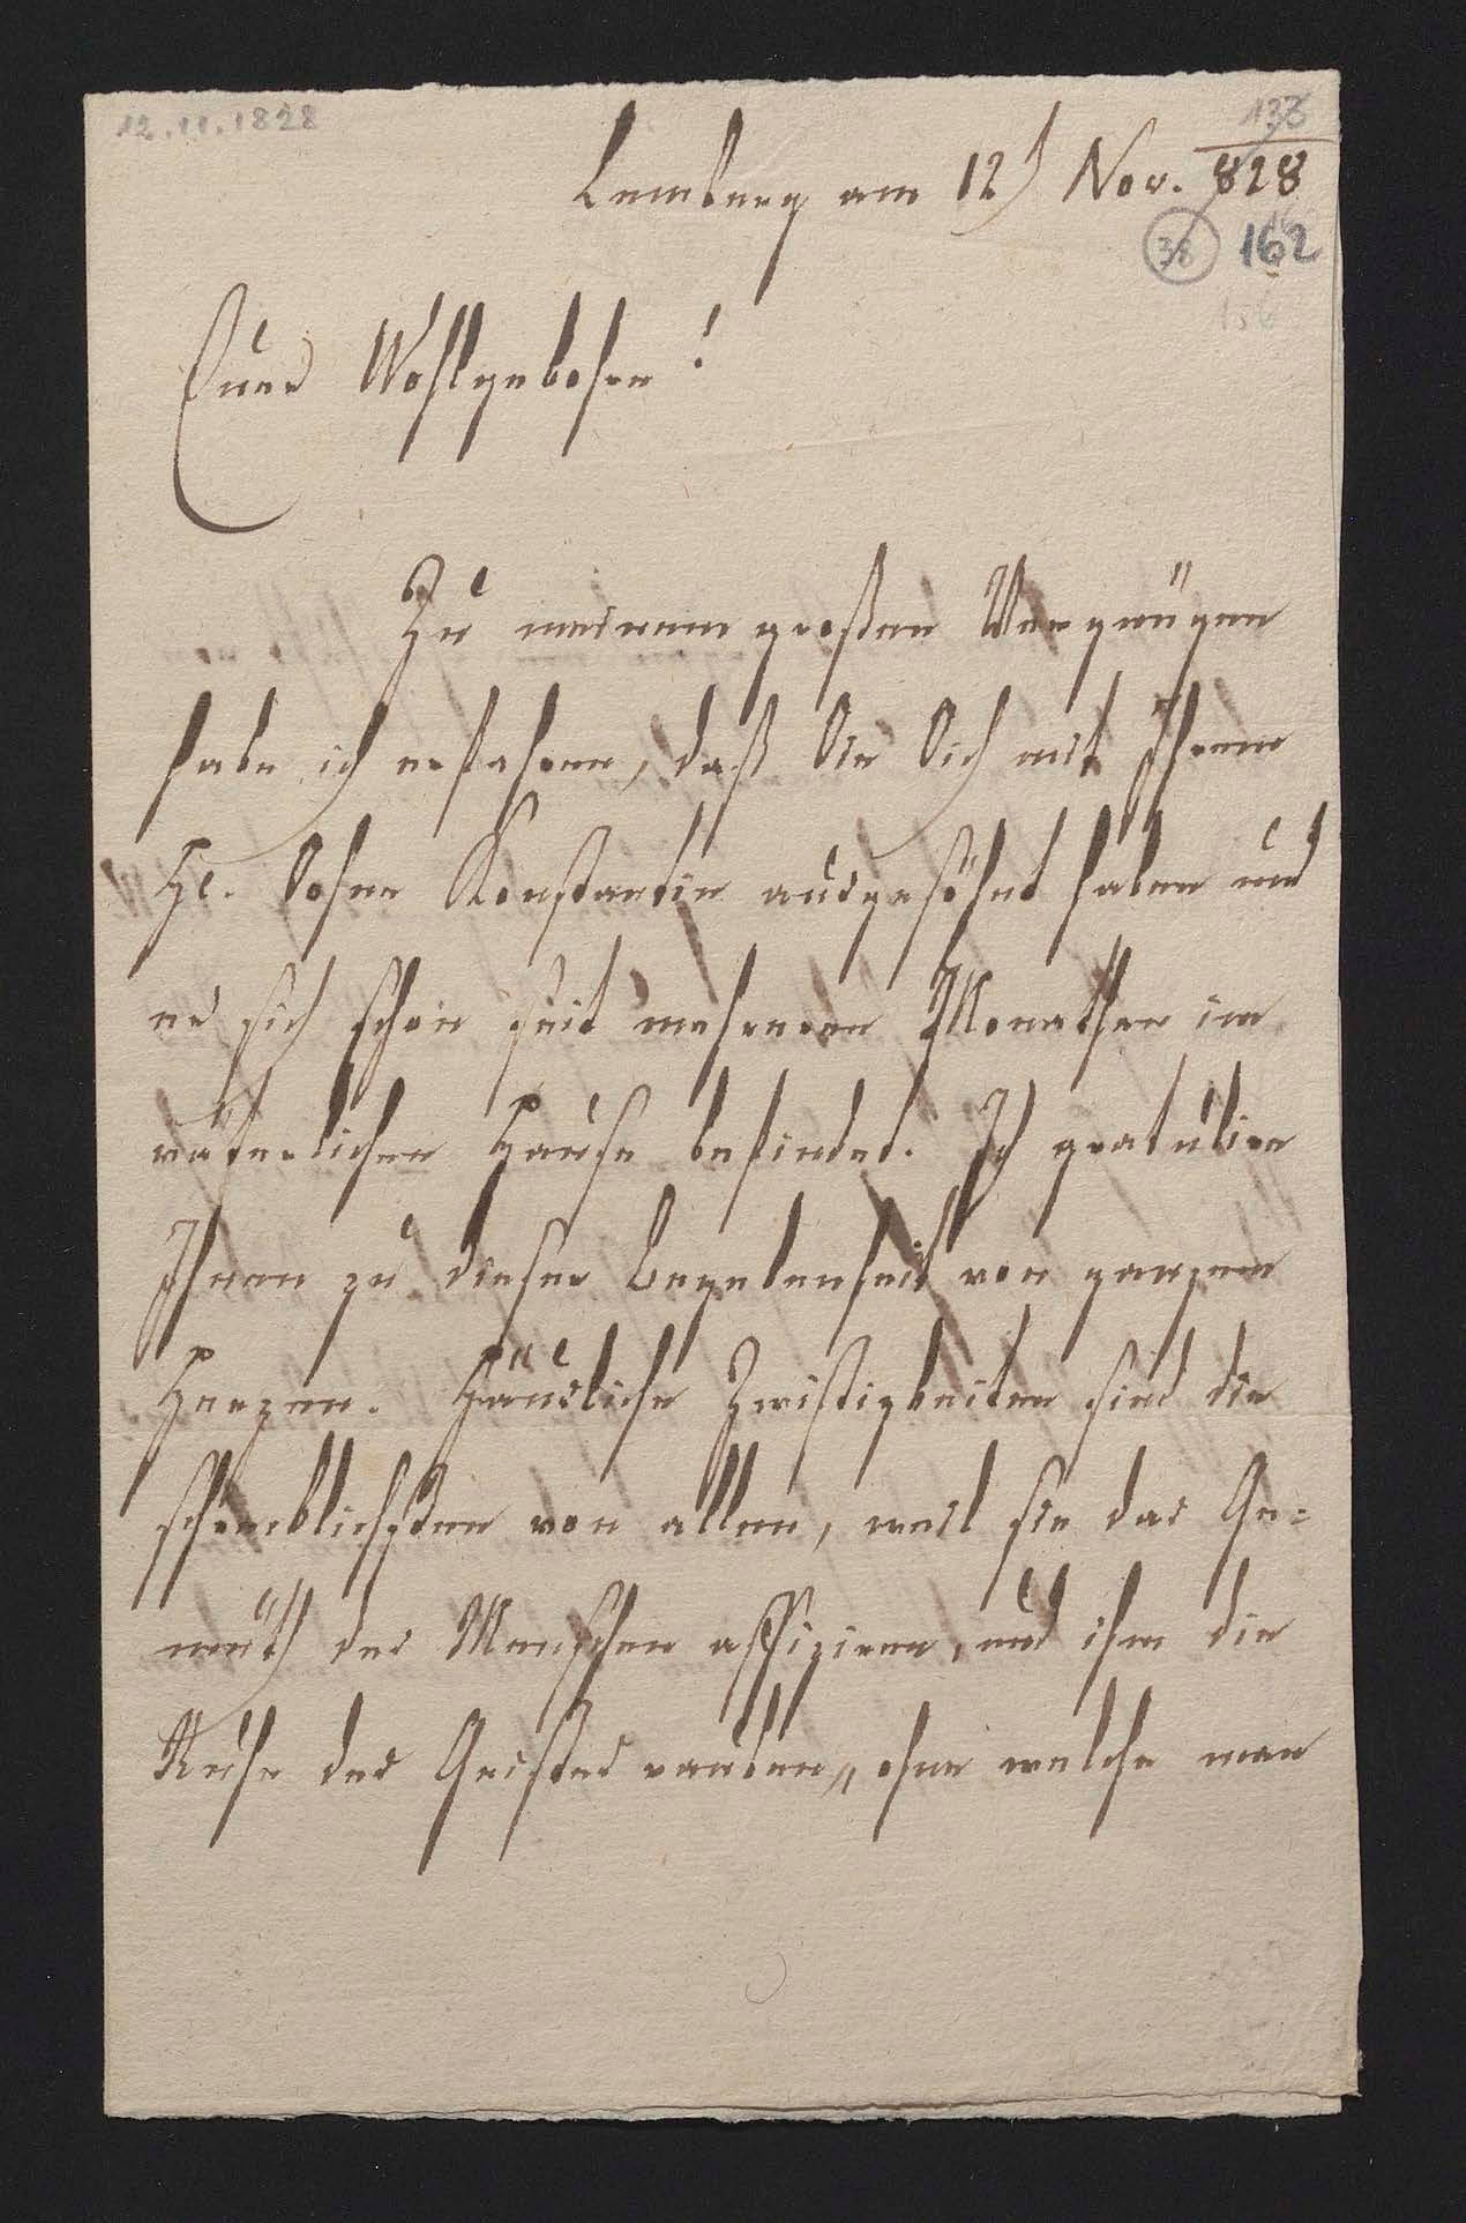 12.11.1828
133
Lemberg am 12t Nov. 828
38 162
156
Euer Wohlgebohren!
Zu meinem großen Vergnügen
habe ich erfahren, daß Sie Sich mit Ihrem
H. Sohne Konstantin ausgesöhnt haben und
er sich schon seit mehreren Monathen im
väterlichen Hause befindet. Ich gratulire
Ihnen zu dieser Begebenheit von ganzem
Herzen. Häusliche Zwistigkeiten sind die
schröcklichsten von allen, weil sie das Ge=
müth des Menschen affiziren, und ihm die
Ruhe des Geistes rauben, ohne welche man